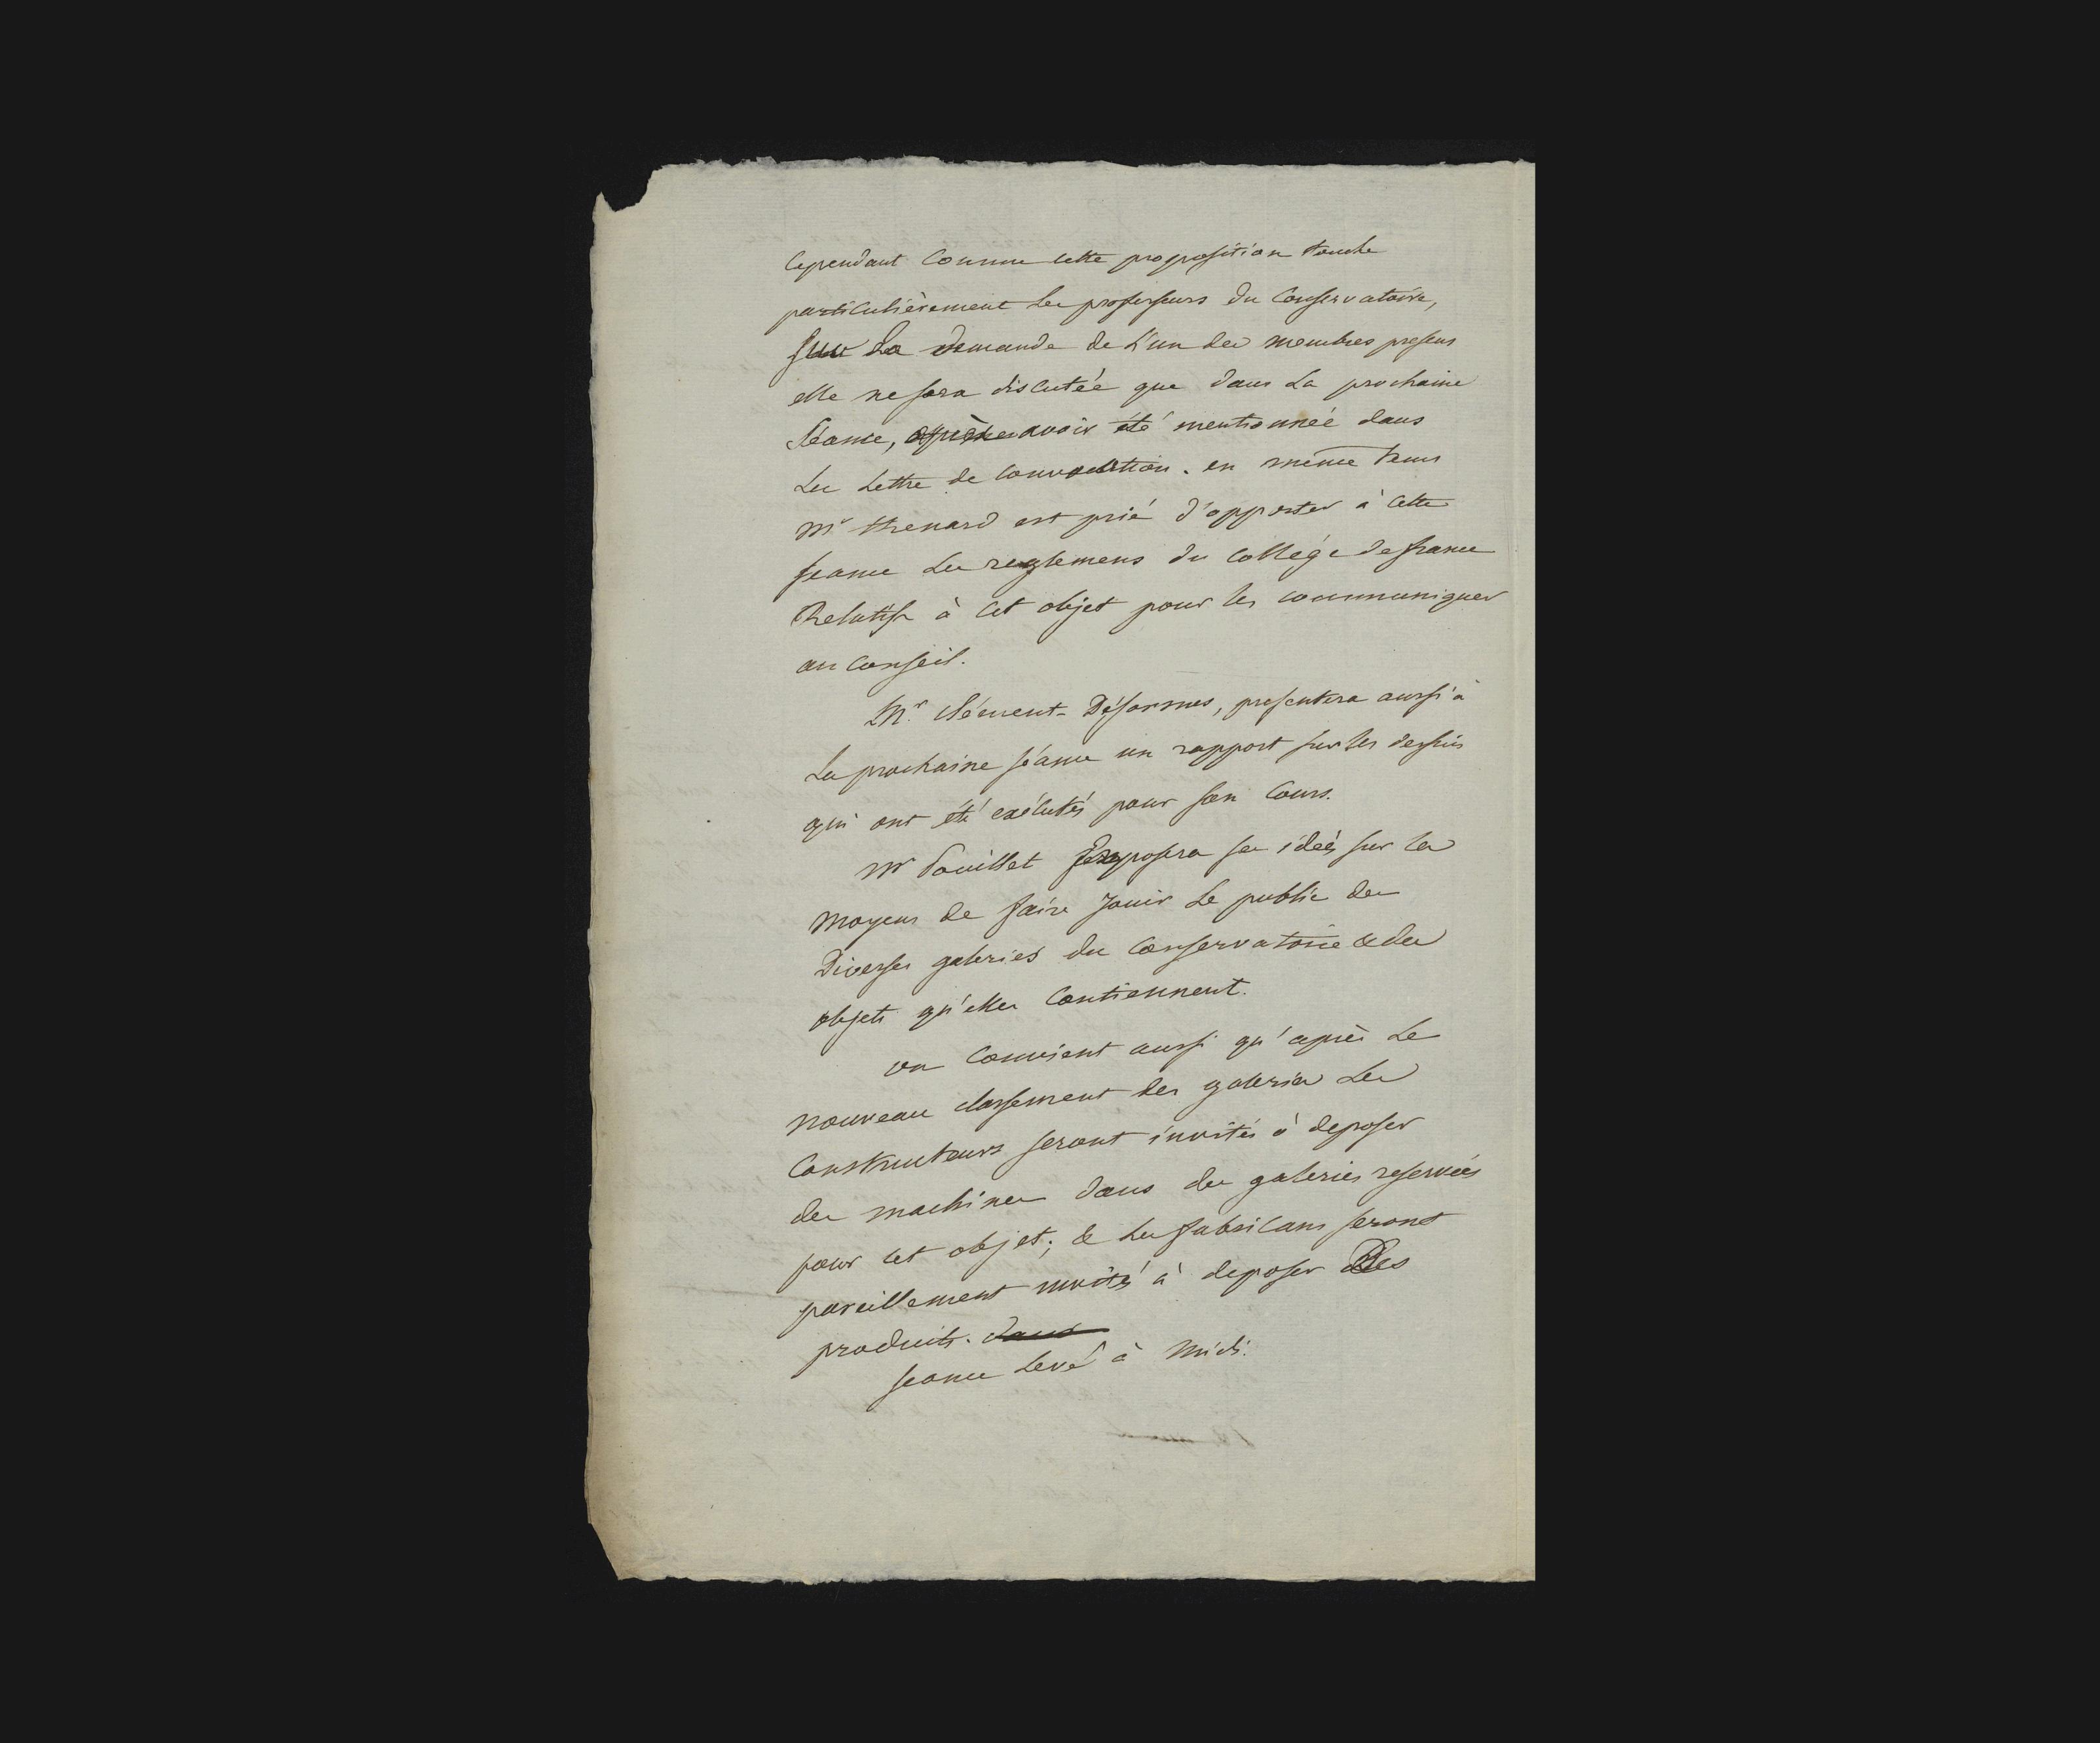 Cependant Comme cette proposition touche
particulièrement les professeurs du Conservatoire,
sur La demande de L'un des membres presens
elle ne sera discutée que dans La prochaine
Séance, après avoir été mentionnée dans
Les Lettre de Convocation. en même tems
Mr thenard est prié d'apporter à Cette
seance Les reglemens du College de france
Relatifs à Cet objet pour les communiquer
au Conseil.
Mr. Clément-Désormes, presentera aussi à
La prochaine séance un rapport sur les dessins
qui ont été exécutés pour son Cours.
Mr Pouillet exposera ses idées sur les
Moyens de faire Jouir Le public des
Diverses galeries du Conservatoire & des
objets qu'elles Contiennent.
on Convient aussi qu'après Le
nouveau classement des galeries Les
Constructeurs seront invités à deposer
des machines dans des galeries reservées
pour Cet objet; & Les fabricans seront
pareillement invités à deposer Des
produits. dans
seance Levé à Midi.